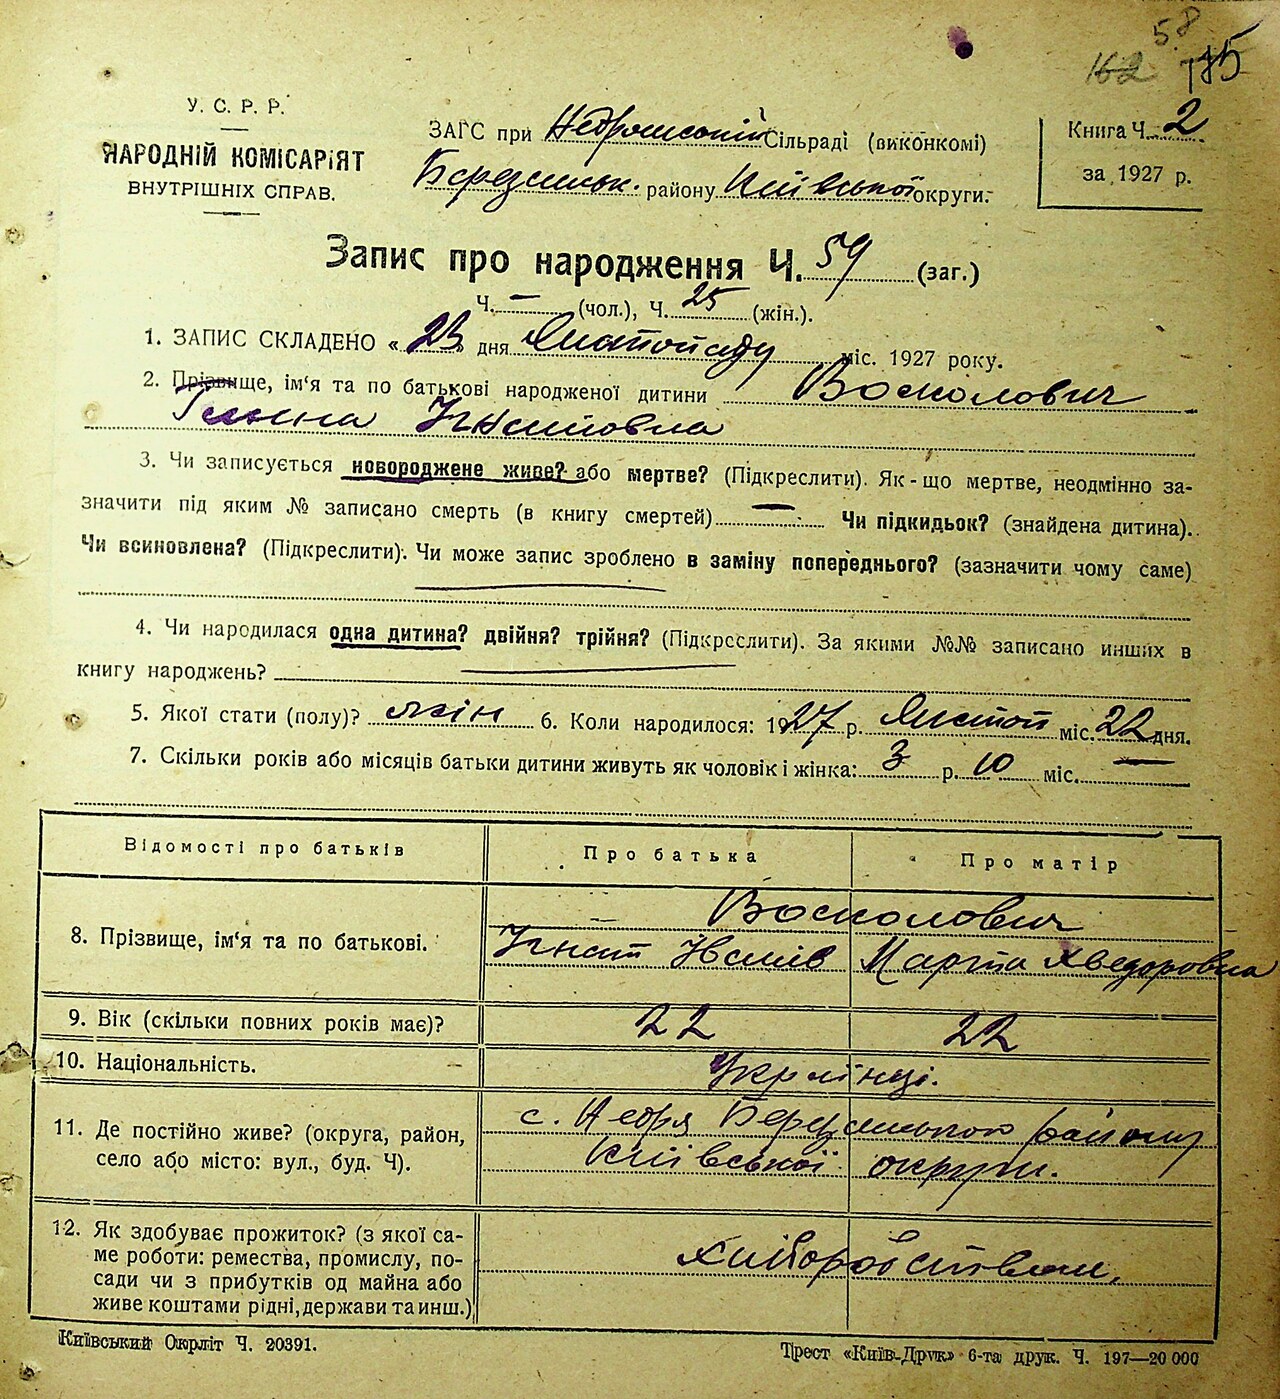 58
162 175
У. С. Р. Р.
НАРОДНІЙ КОМІСАРІЯТ
ВНУТРІШНІХ СПРАВ.
ЗАГС при Сільраді (виконкомі)
району Київської округи.
Книга Ч. 2
за 1927 р.
Запис про народження Ч. 59 (заг.)
Ч. — (чол.), Ч. 25 (жін.).
1. ЗАПИС СКЛАДЕНО « 23 » дня Листопаду міс. 1927 року.
2. Прізвище, ім‘я та по батькові народженої дитини Восколович
Ігнатовна
3. Чи записується новороджене живе? або мертве? (Підкреслити). Як-що мертве, неодмінно за-
значити під яким № записано смерть (в книгу смертей) — Чи підкидьок? (знайдена дитина).
Чи всиновлена? (Підкреслити). Чи може запис зроблено в заміну попереднього? (зазначити чому саме)
4. Чи народилася одна дитина? двійня? трійня? (Підкреслити). За якими №№ записано инших в
книгу народжень?
5. Якої стати (полу)? жін 6. Коли народилося: 1927 р. Листоп міс. 22 дня.
7. Скільки років або місяців батьки дитини живуть як чоловік і жінка: 3 р. 10 міс. —
Відомості про батьків Про батька Про матір
8. Прізвище, ім‘я та по батькові. Восколович
Ігнат Іванів Марта Хведоровна
9. Вік (скільки повних років має)? 22 22
10. Національність. Українці.
11. Де постійно живе? (округа, район,
село або місто: вул., буд. Ч).
с. Недря району
Київської округи.
12. Як здобуває прожиток? (з якої са-
ме роботи: ремества, промислу, по-
сади чи з прибутків од майна або
живе коштами рідні, держави та инш.)
Хліборобством.
Київський Окрліт Ч. 20391.
Трест «Київ-Друк» 6-та друк. Ч. 197—20 000